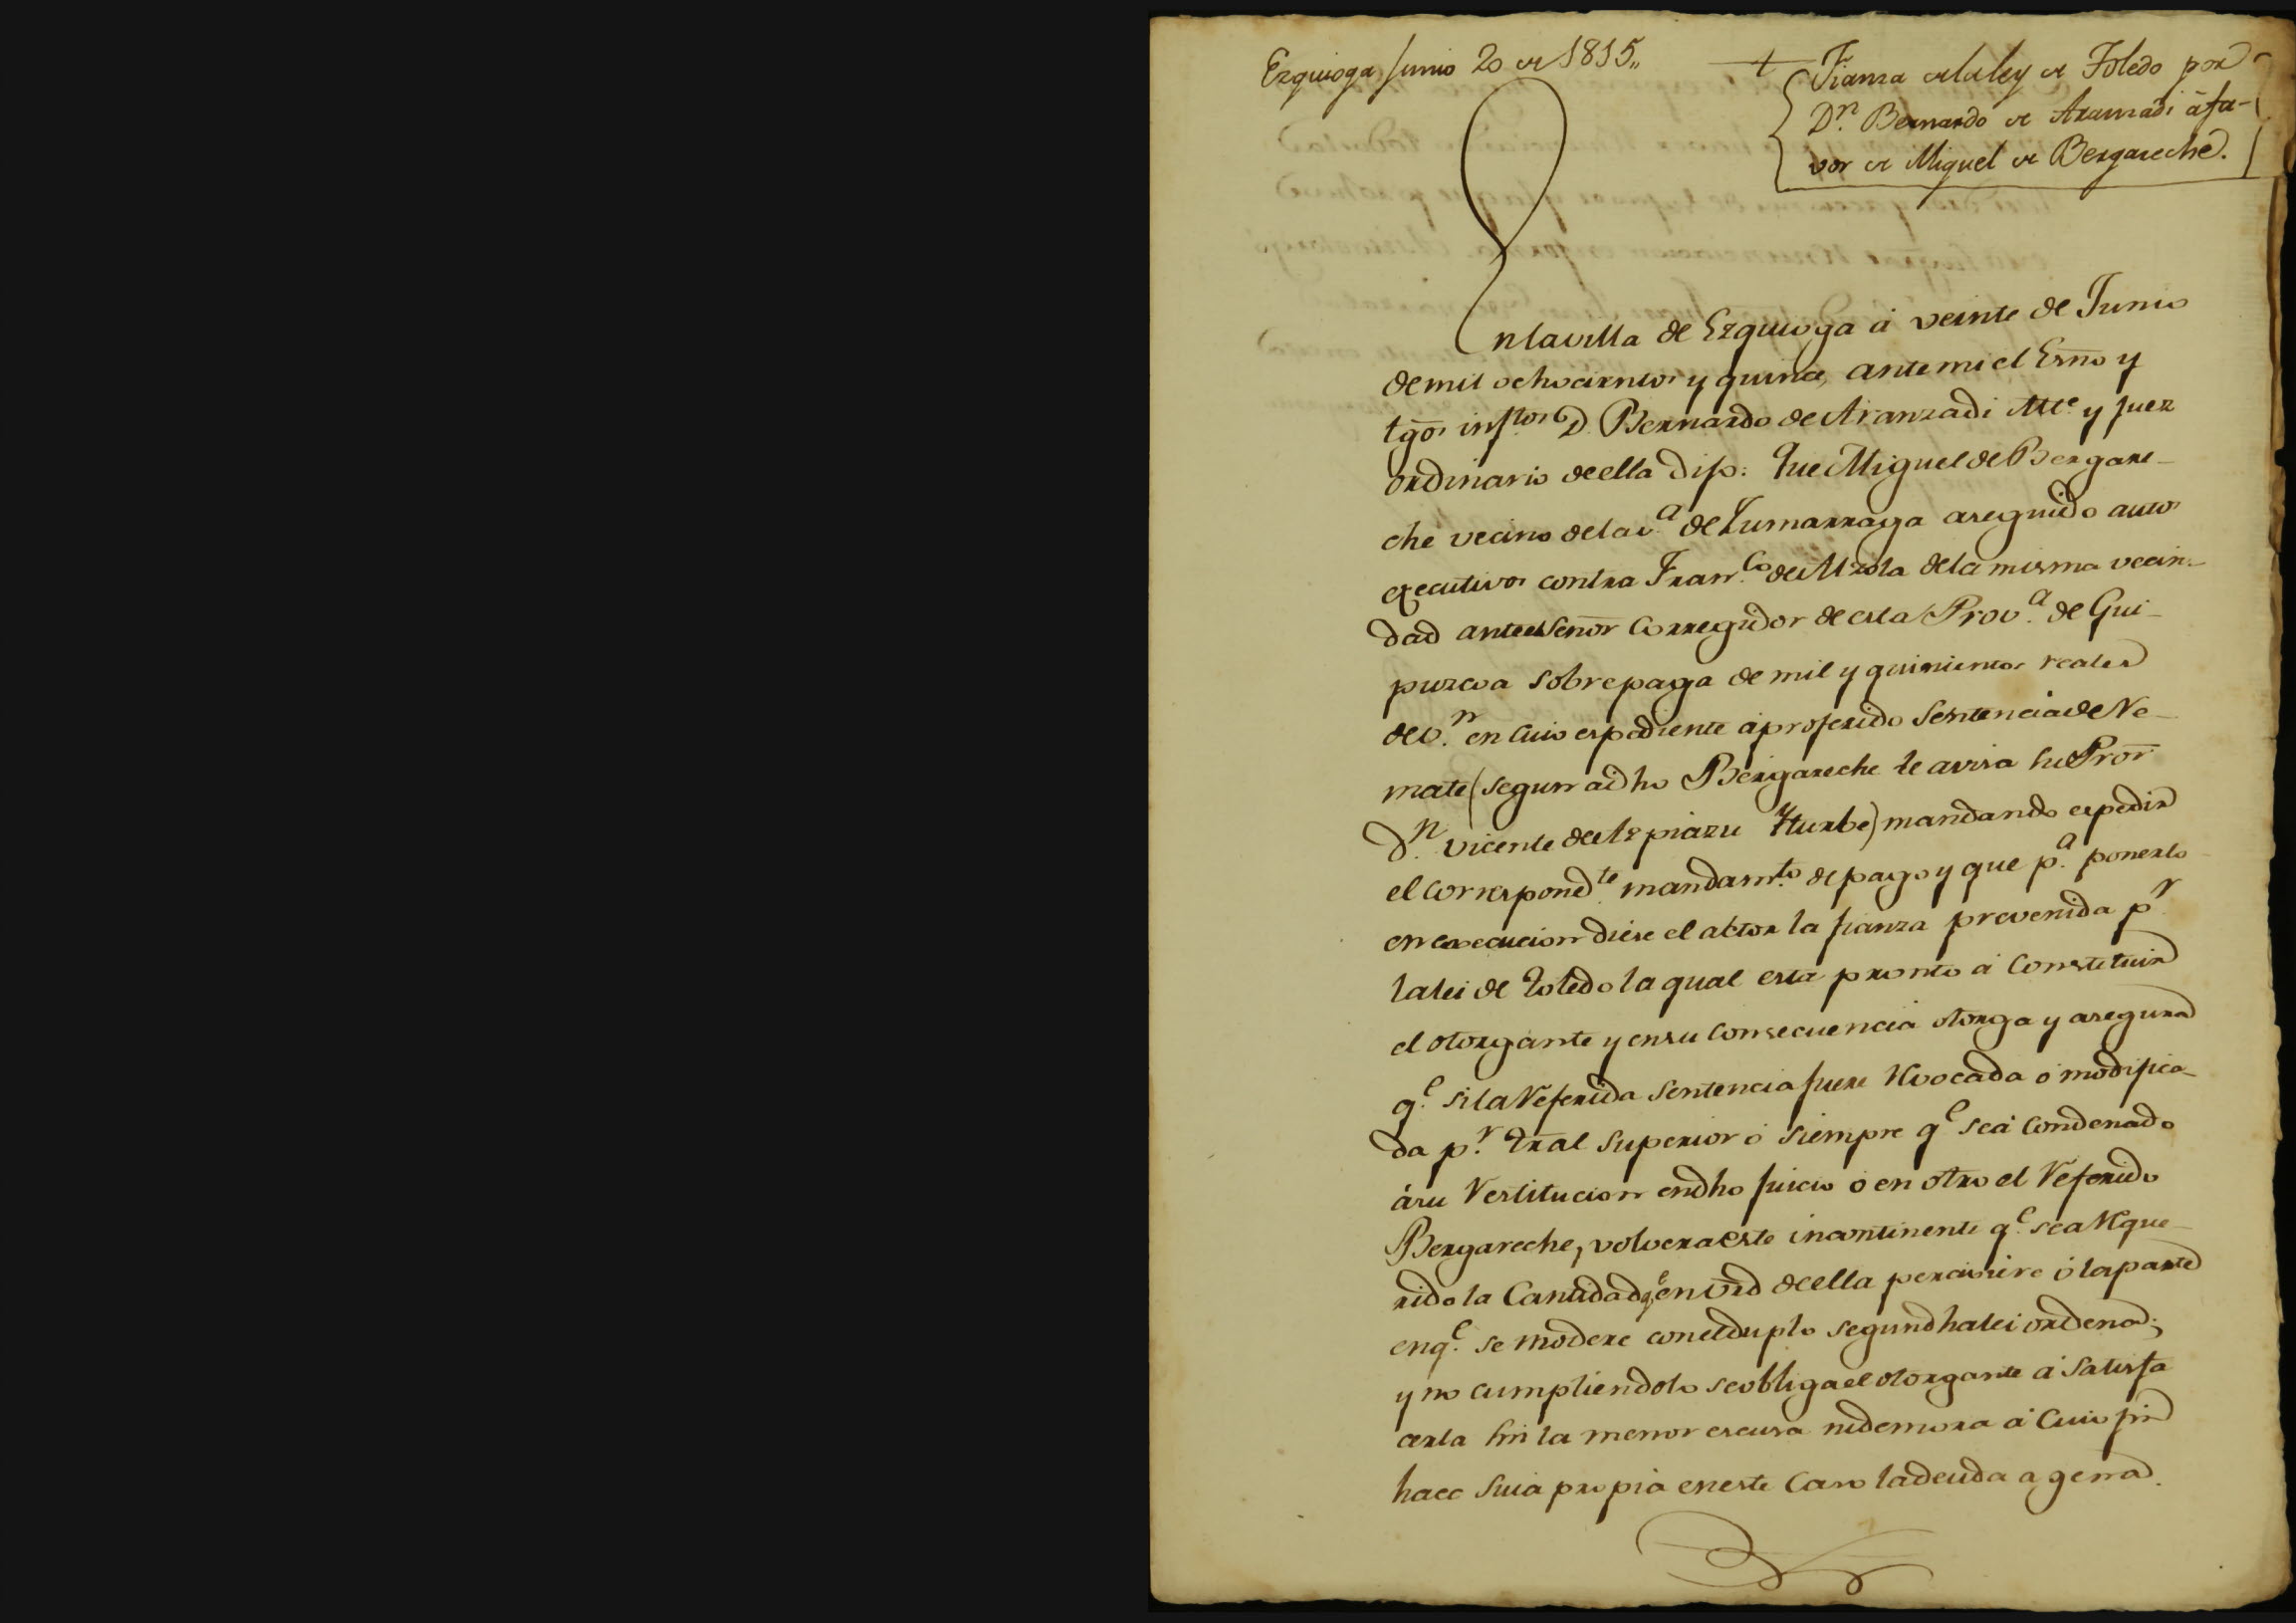 Ezquioga Junio 20 de 1815,,
+
Fianza de la ley de Toledo por
Dn. Bernardo de Aranzadi á fa-
vor de Miguel de Bergareche.
En la villa de Ezquioga á veinte de Junio
de mil ochocientos y quince, ante mi el Esno y
tgos. infros D. Bernardo de Aranzadi Alce. y Juez
ordinario de ella dijo: Que Miguel de Bergare-
che vecino de la va. de Zumarraga a seguido autos
executivos contra Franco. de Alzola de la misma vecin-
dad ante el Señor Corregidor de esta Prova. de Gui-
puzcoa sobre paga de mil y quinientos reales
de vn. en cuio espediente á proferido Sentencia de Re-
mate (segun a dho Bergareche le avisa su Pror
Dn. Vicente de Azpiazu Yturbe) mandando espedir
el correspondte. mandamto. de pago y que pa. ponerlo
en execucion diese el abtor la fianza prevenida pr.
la lei de Toledo la qual está pronto á Constituir
el otorgante y en su consecuencia otorga y asegura
qe. si la Referida Sentencia fuere Revocada ó modifica-
da pr. Tral Superior ó siempre qe sea Condenado
á su Restitucion en dho Juicio ó en otro el Referido
Bergareche, volvera este incontinenti qe. sea Reque-
rido la Cantidad qe en vrd de ella perciviere ó la parte
en qe. se modere con el duplo segun dha lei ordena;
y no cumpliendolo se obliga el otorgante á Satisfa
cerla sin la menor escusa ni demora á Cuio fin
hace Suia propia en este Caso la deuda agena.